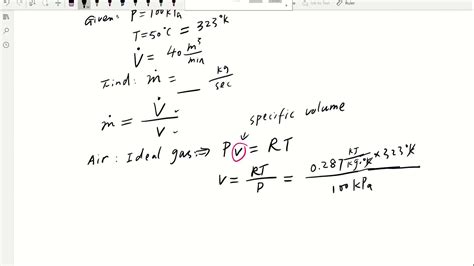 Given: P = 100kPa
T=50°C = 323°K
V̇ = 40 m³/min
Find: ṁ = __ kg/sec
ṁ = V̇/v
specific volume
Air: Ideal gas ⇒ Pv = RT
v = RT/P = 0.287 KJ/kg·°K × 323°K / 100kPa